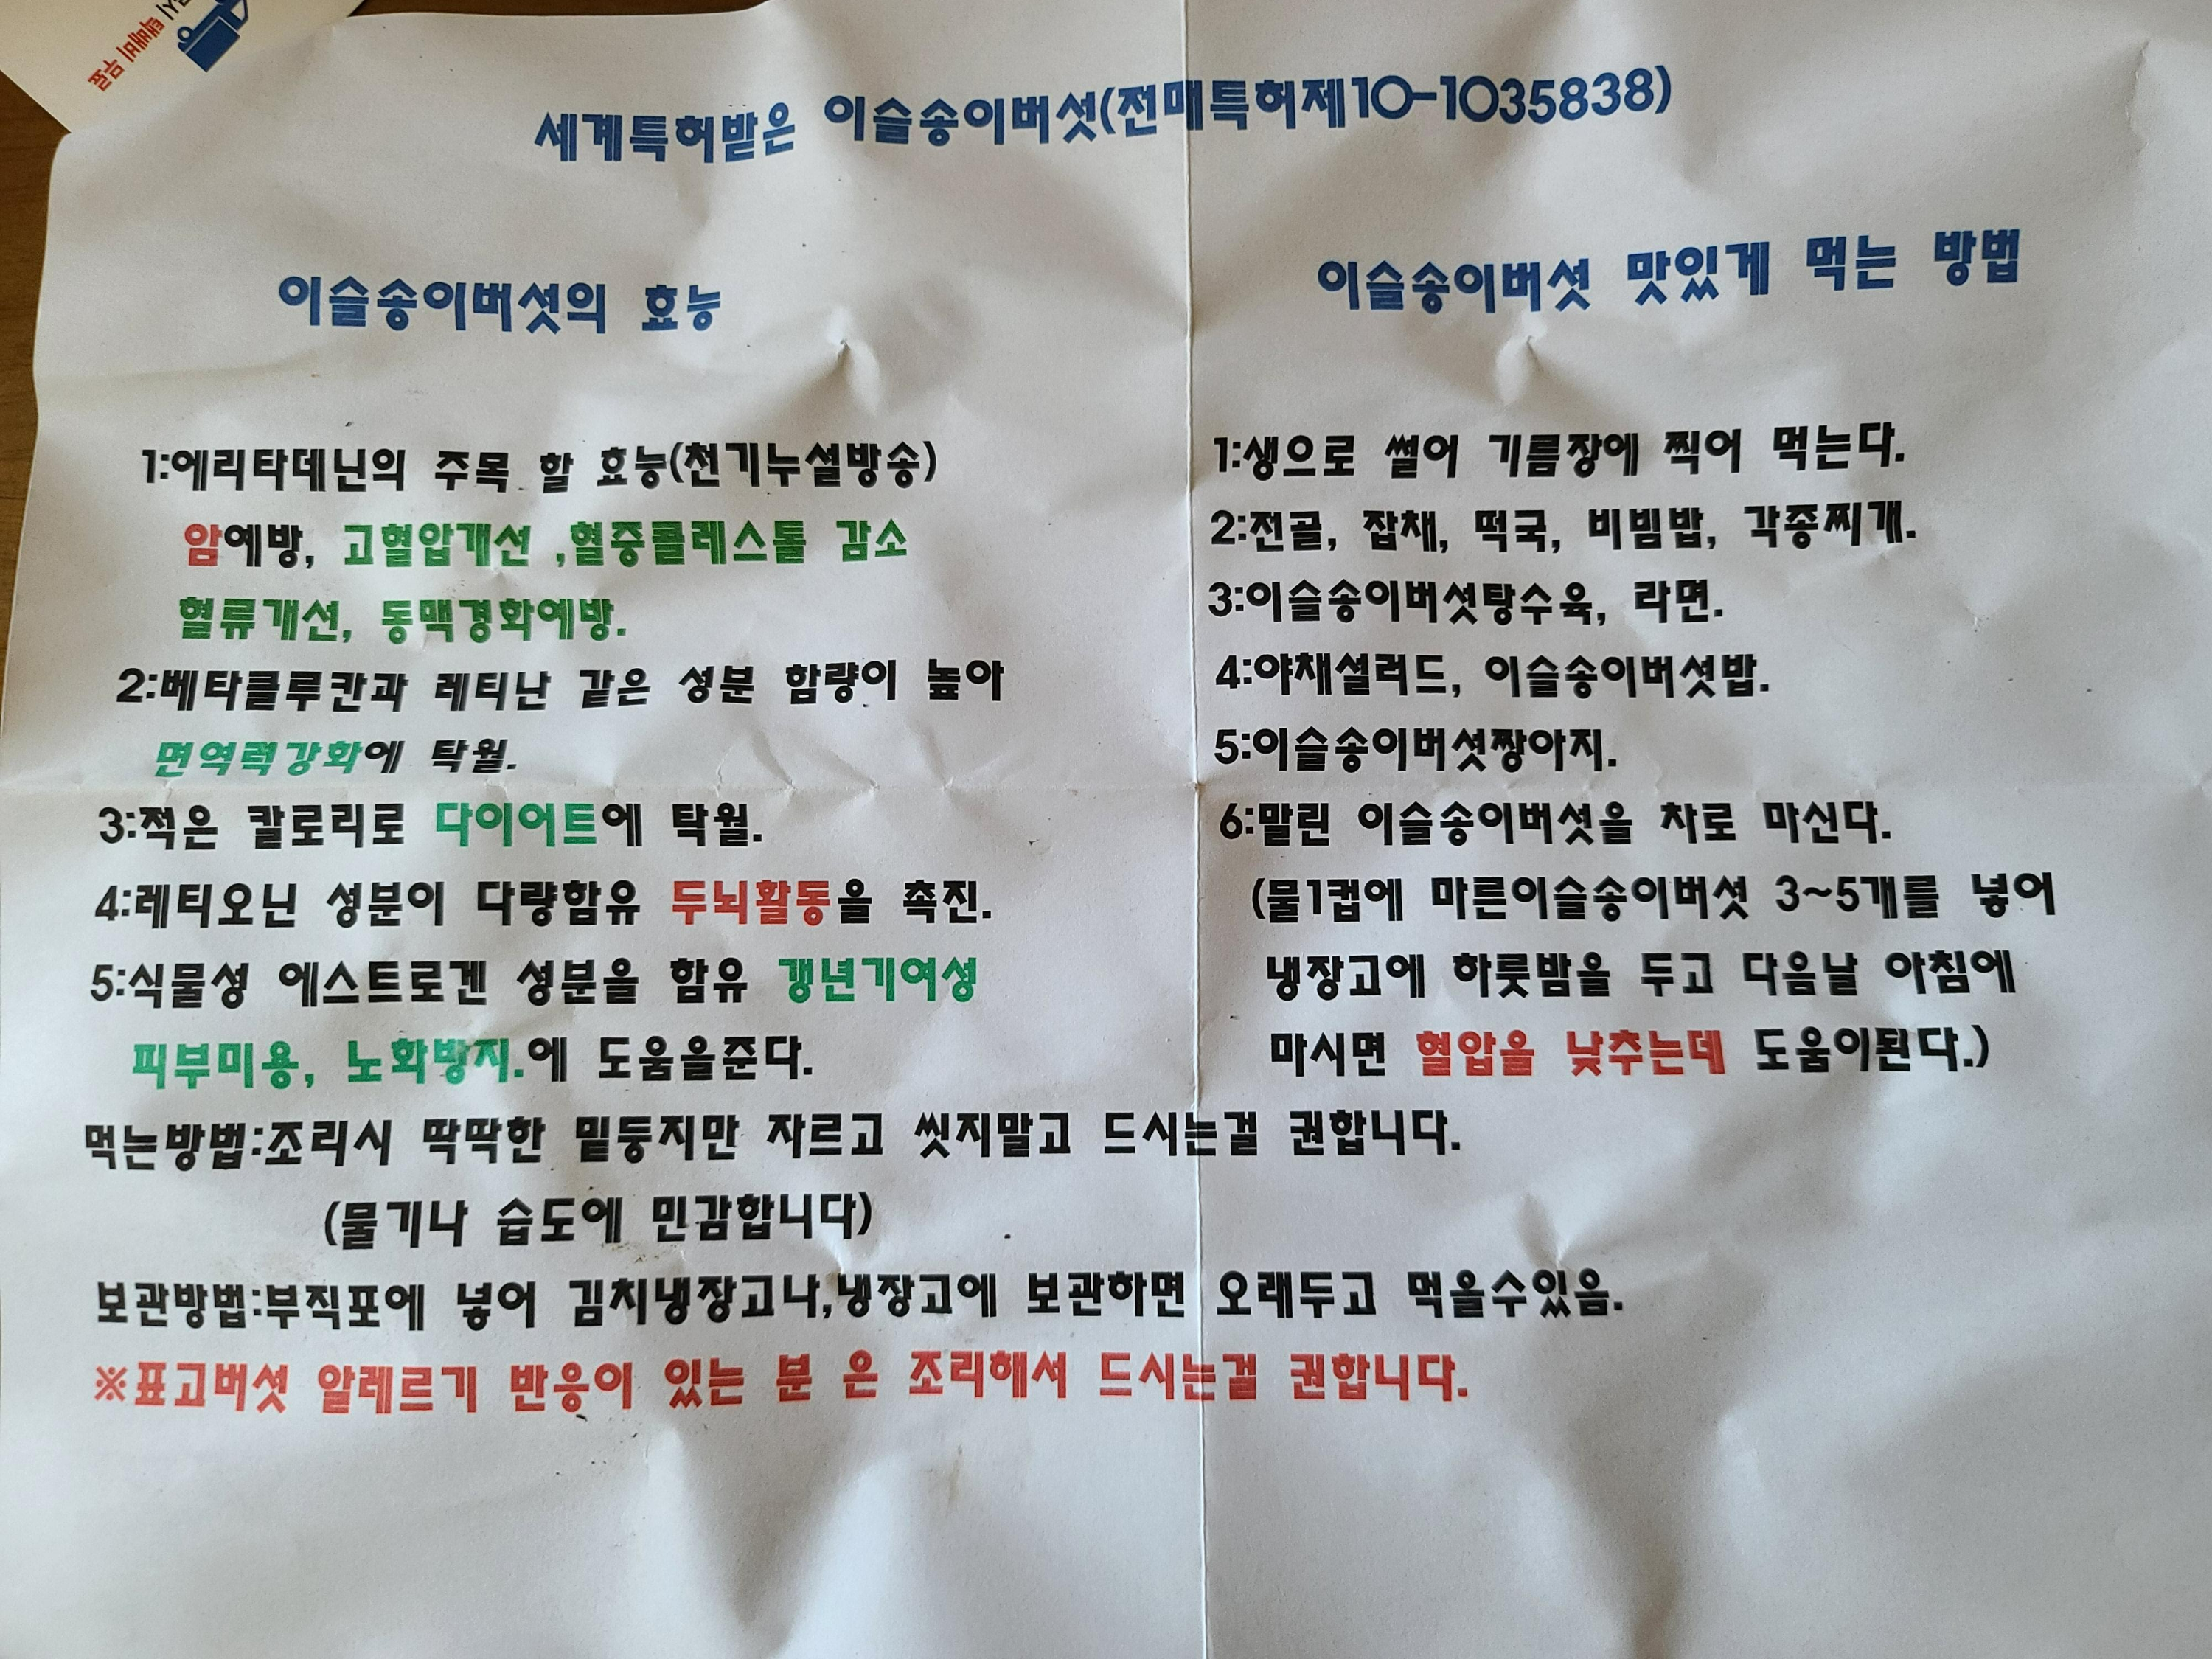 택배비 무료
세계특허받은 이슬송이버섯(전매특허제10-1035838)
이슬송이버섯의 효능
1:에리타데닌의 주목 할 효능(천기누설방송)
암예방, 고혈압개선 ,혈중콜레스톨 감소
혈류개선, 동맥경화예방.
2:베타클루칸과 레티난 같은 성분 함량이 높아
면역력강화에 탁월.
3:적은 칼로리로 다이어트에 탁월.
4:레티오닌 성분이 다량함유 두뇌활동을 촉진.
5:식물성 에스트로겐 성분을 함유 갱년기여성
피부미용, 노화방지.에 도움을준다.
이슬송이버섯 맛있게 먹는 방법
1:생으로 썰어 기름장에 찍어 먹는다.
2:전골, 잡채, 떡국, 비빔밥, 각종찌개.
3:이슬송이버섯탕수육, 라면.
4:야채셀러드, 이슬송이버섯밥.
5:이슬송이버섯짱아지.
6:말린 이슬송이버섯을 차로 마신다.
(물1컵에 마른이슬송이버섯 3~5개를 넣어
냉장고에 하룻밤을 두고 다음날 아침에
마시면 혈압을 낮추는데 도움이된다.)
먹는방법:조리시 딱딱한 밑둥지만 자르고 씻지말고 드시는걸 권합니다.
(물기나 습도에 민감합니다)
보관방법:부직포에 넣어 김치냉장고나,냉장고에 보관하면 오래두고 먹을수있음.
※표고버섯 알레르기 반응이 있는 분 은 조리해서 드시는걸 권합니다.